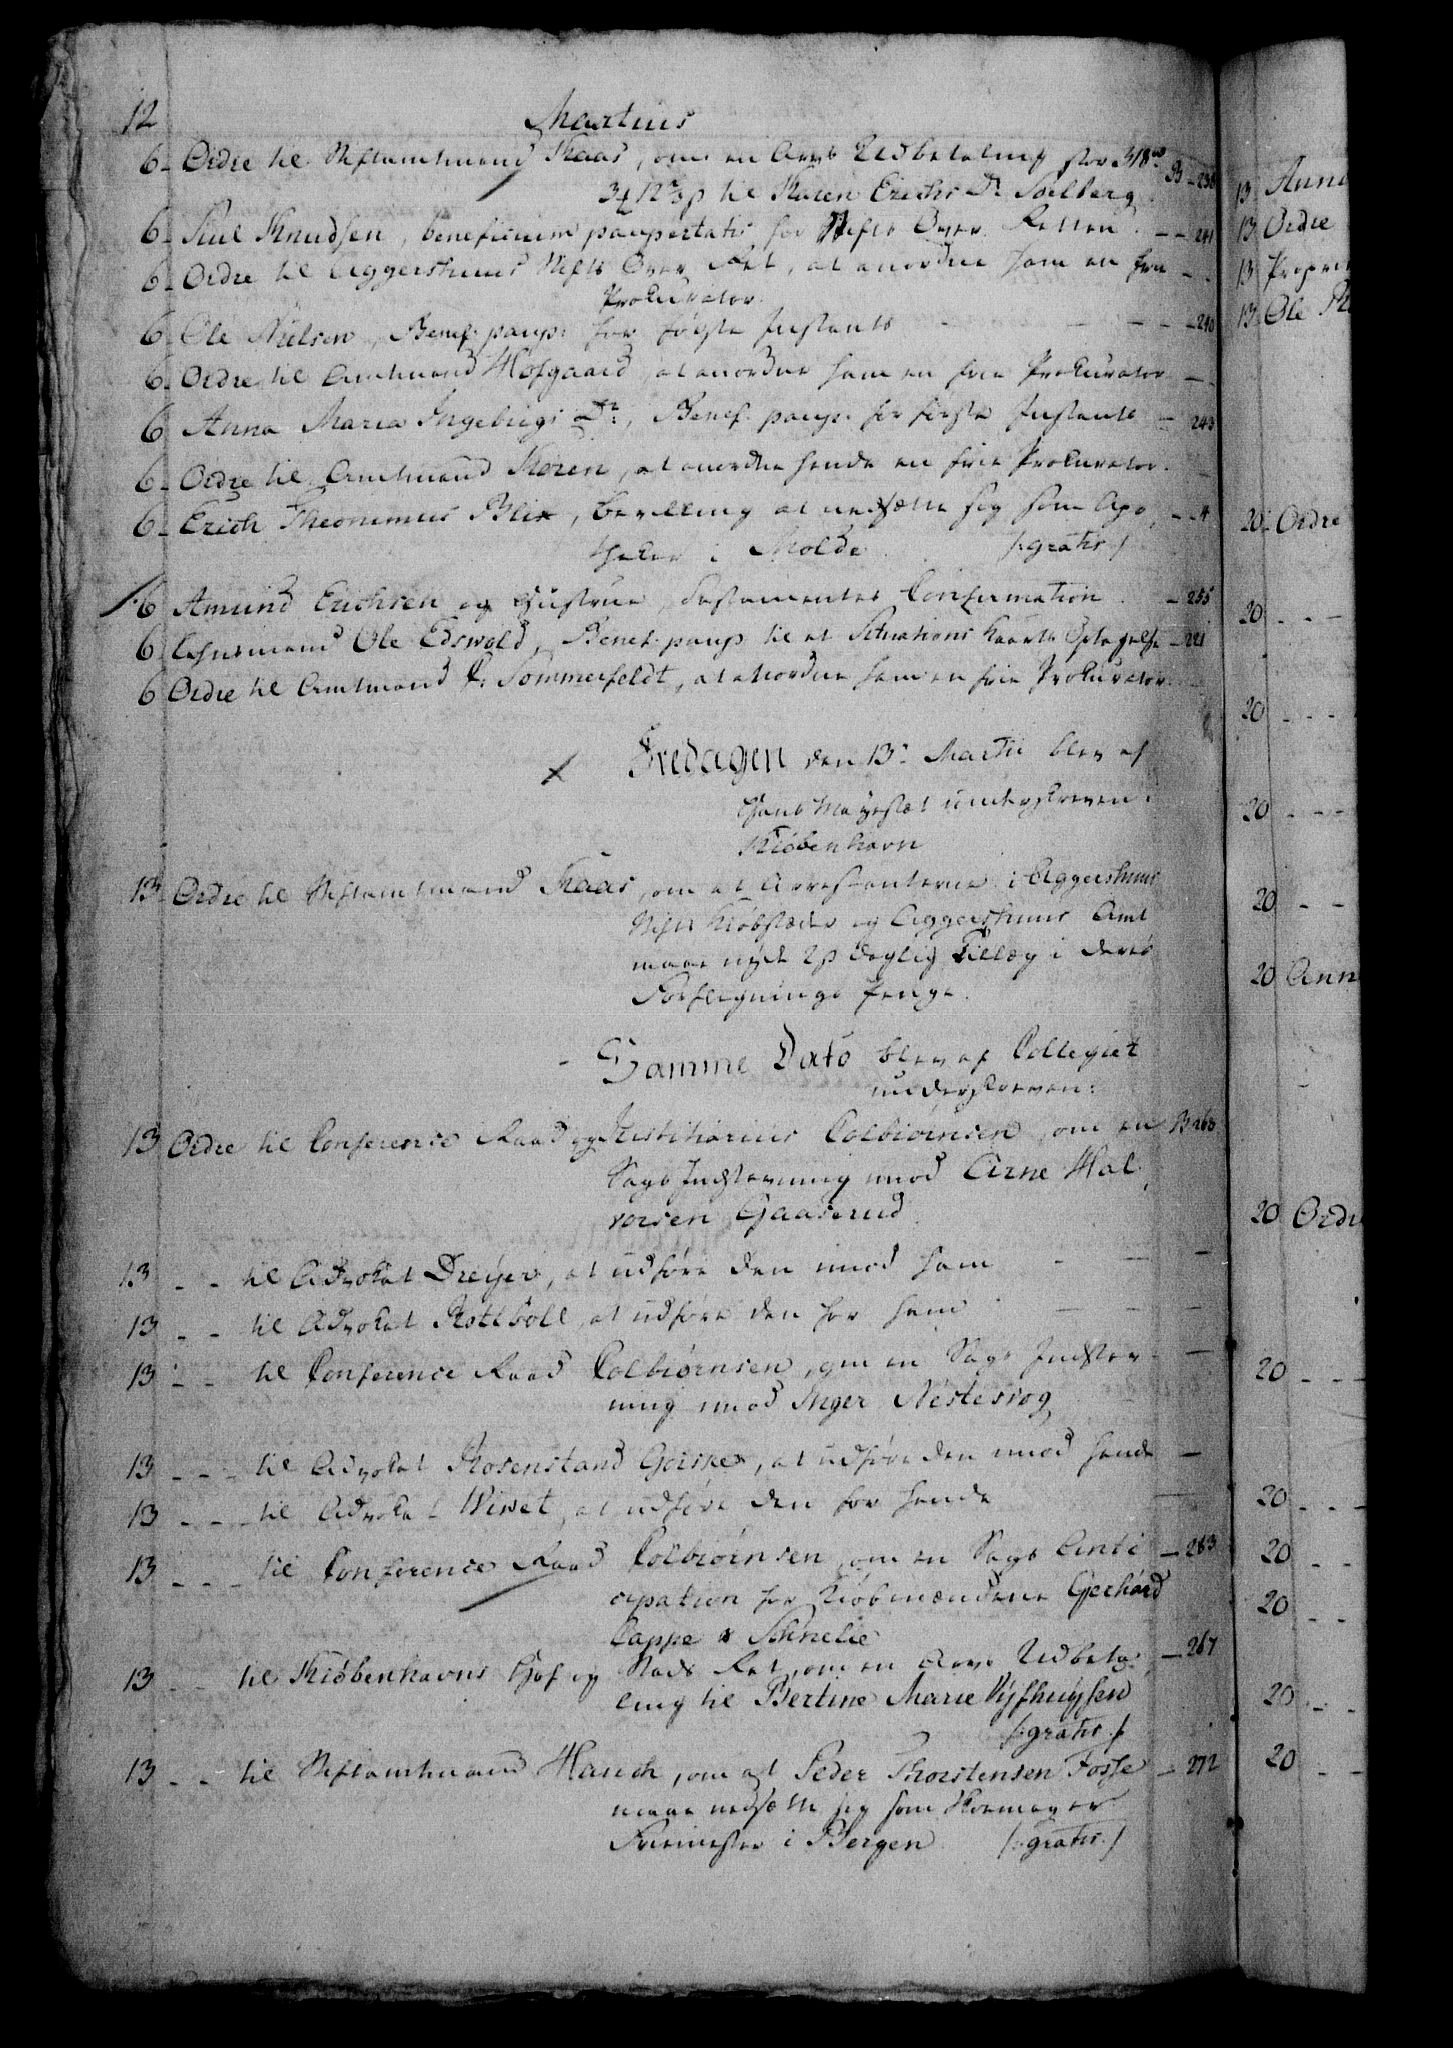 12
Martius
6 - Ordre til Stiftamtmand Kaas, om en Arvs Udbetaling stor 318 rd B - 238
3 ƶ 12 3 p til Karen Erichs Dr Solberg
6 - Siul Knudsen, beneficium paupertatis for Stifts Over Retten - - 241
6 - Ordre til Aggershuus Stifts Over Ret, at anordne ham en frie - -
Prokurator.
6 - Ole Nielsen, Benef: paup: for første Instants - - - - 240
6 - Ordre til Amtmand Hofgaard, at anordne ham en frie Prokurator - -
6 Anna Maria Ingebrigs Dr, Benef: paup: for første Instants - 243
6 - Ordre til Amtmand Koren, at anordne hende en frie Prokurator. -
6 - Erich Theonimus Blix, bevilling at nedsætte sig som Apo - - 4
theker i Molde. /: gratis :/
6 Amund Erichsen og Hustrue, Testamentes Confirmation - 255
6 Huusmand Ole Edswold, Benef: paup til et Situations Kaarts Optagelse - 221
6 Ordre til Amtmand C. Sommerfeldt, at anordne ham en frie Prokurator -
Fredagen den 13: Martii blev af
Hans Mayestæt underskreven i
Kiøbenhavn
13 - Ordre til Stiftamtmand Kaas, om at Arrestanterne i Aggershuus
Stifts Kiøbstæder og Aggershuus Amt
maae nyde 2 p daglig Tillæg i deres
Forplegnings penge.
- Samme Dato blev af Collegiet
underskreven:
13 Ordre til Conference Raad og Justitiarius Colbiørnsen, om en B 263
Sags Indstevning mod Arne Hal
vorsen Gaaserud.
13 - - til Advokat Dreyer, at udføre den imod ham - - -
13 - - til Advokat Rottbøll, at udføre den for ham - - -
13 - - til Conference Raad Colbiørnsen, om en Sags Indstev - -
ning imod Inger Nestesvog
13 - - - til Advokat Rosenstand Goiske, at udføre den imod hende -
13 - - - til Advokat Wivet, at udføre den for hende
13 - - - til Conference Raad Colbiørnsen, om en Sags Anti - 263
cipation for Kiøbmændene Gerhard
Cappe & Schnelle
13 - - til Kiøbenhavns Hof og Stads Ret, om en Arvs Udbeta - 267
ling til Bertine Marie Vyfhuysen
/: gratis :/
13 - - til Stiftamtmand Hauch, om at Peder Thorstensen Fosse - 272
maae nedsætte sig som Skoemager
Friemester i Bergen /: gratis :/
13 Anna
13 Ordre
13
13 Ole
20 - Ordre
20 - - -
20 - - -
20 - - -
20 - -
20 Ann
20 Ordre
20 - - -
20 - - -
20 - -
20 - -
20 - -
20 - -